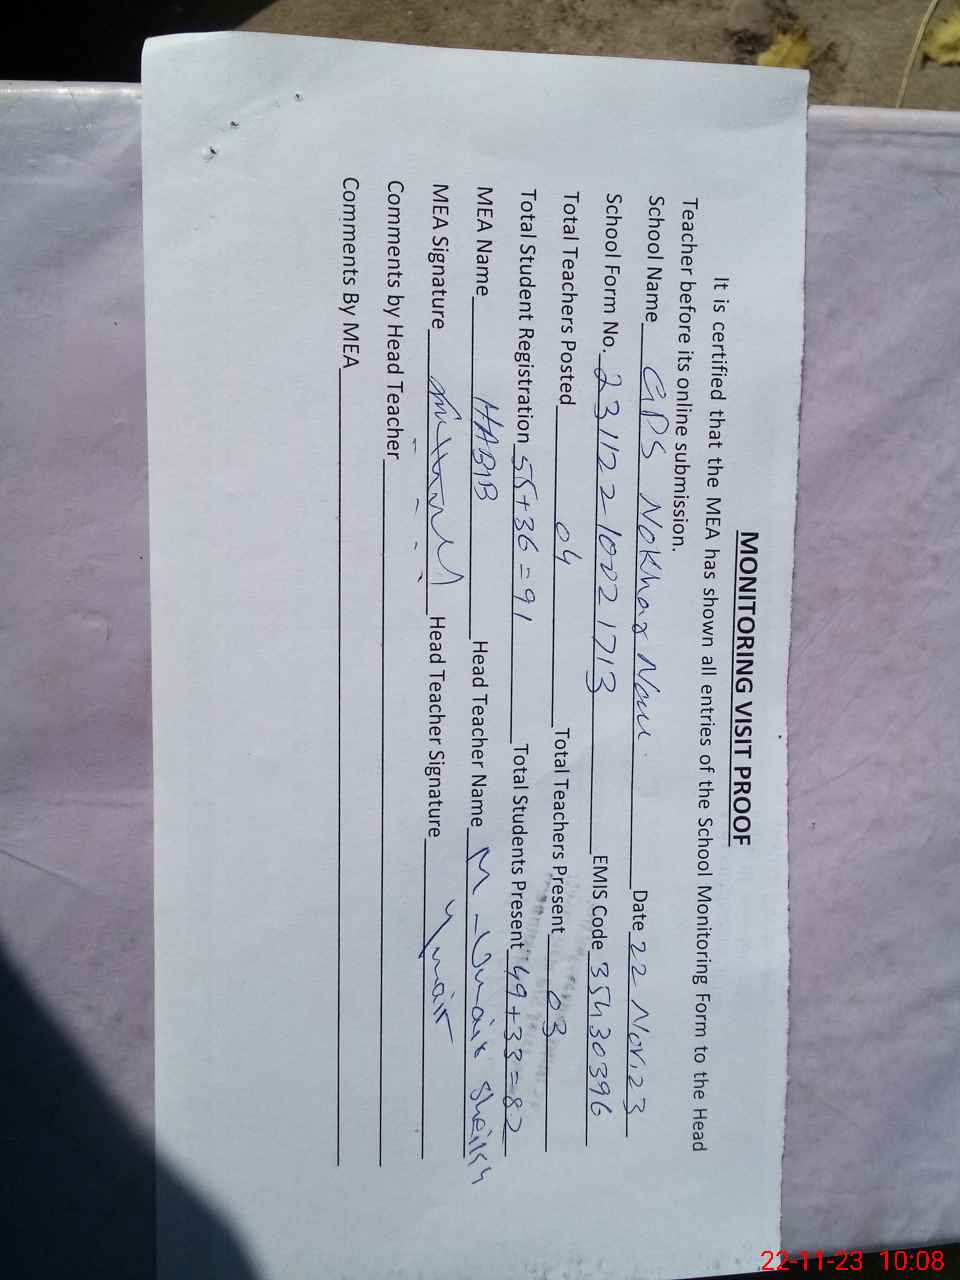 MONITORING VISIT PROOF
It is certified that the MEA has shown all entries of the School Monitoring Form to the Head
Teacher before its online submission.
School Name GPS Nokhar Nau Date 22 Nov.23
School Form No. 231122-10021713 EMIS Code 35430396
Total Teachers Posted 04 Total Teachers Present 03
Total Student Registration 55+36=91 Total Students Present 49+33=82
MEA Name HABIB Head Teacher Name M-Umair Sheikh
MEA Signature Head Teacher Signature Umair
Comments by Head Teacher
Comments By MEA
22-11-23 10:08